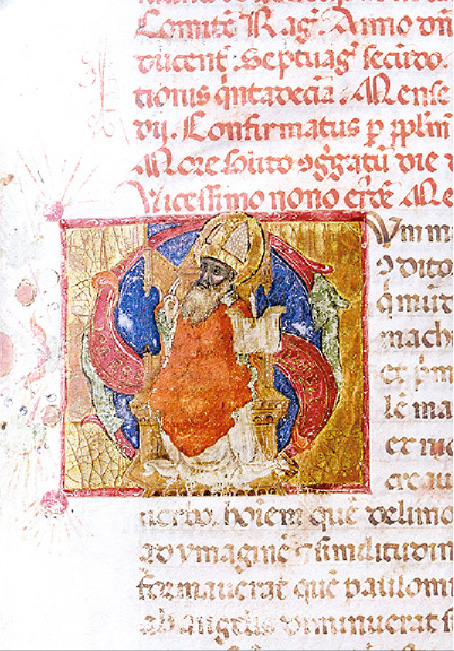 Comite Rag. Anno dñi
ducent. Septuag. secũdo.
tionis q̃ntadecĩa. Mense
dii. Confirmatus p pplm̃
More solito ɔg̃gatũ die v
Vicessimo nono eiusdẽ Me
Vm m
ɔdito
q̃mut
mach
et p̃m
le ma
et nu
cre au
uerbo. hoiem quẽ de limo
ad ymaginẽ ⁊ similitudin
formauerat quẽ paulomi
ab angelis diminuerat s